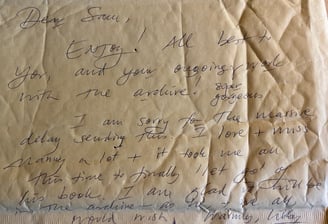 Dear Sam,
Enjoy! All best to
you, and your ongoing work
with the archive. super
gorgeous
I am sorry for the massive
delay sending this. I love + miss
Manny a lot + it took me all
this time to finally let go of
his book. I am glad it will be
in the archive + so
would wish. Warmly, Libby